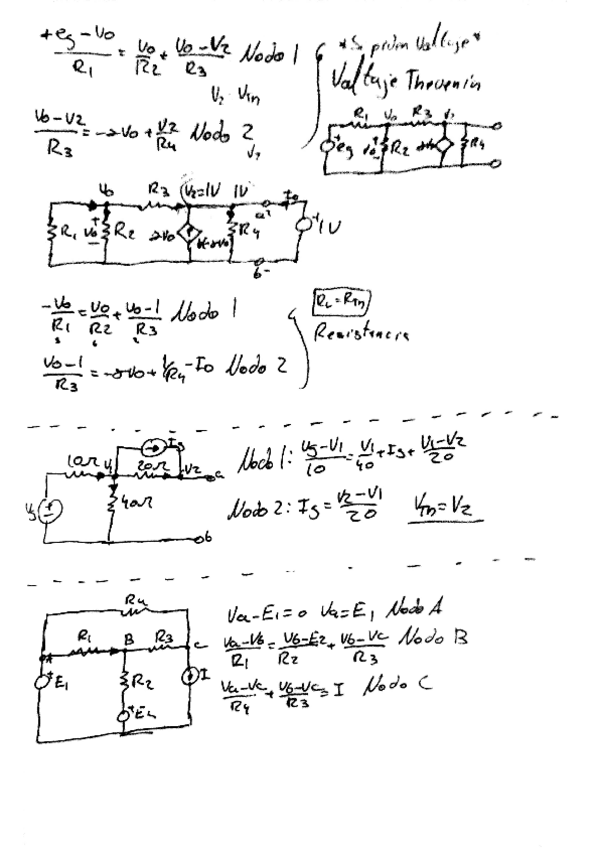 +eg-Vo/R1 = Vo/R2 + Vo-V2/R3 Nodo 1
V2 = Vth
Vo-V2/R3 = -2Vo + V2/R4 Nodo 2
Voltaje Thevenin
R1 Vo R3 V2
eg Vo R2 2Vo R4
Vo R3 V2=1V 1V a+ Io
R1 Vo R2 2Vo R4 1V
b-
-Vo/R1 = Vo/R2 + Vo-1/R3 Nodo 1
Vo-1/R3 = -2Vo + 1/R4 - Io Nodo 2
RL=RTh
Resistencia
Is
10Ω V1 20Ω V2 a
Vs 40Ω b
Nodo 1: Vs-V1/10 = V1/40 + Is + V1-V2/20
Nodo 2: Is = V2-V1/20 VTh=V2
R4
A R1 B R3 C
E1 R2 I
E2
Va-E1=0 Va=E1 Nodo A
Va-Vb/R1 = Vb-E2/R2 + Vb-Vc/R3 Nodo B
Va-Vc/R4 + Vb-Vc/R3 = I Nodo C